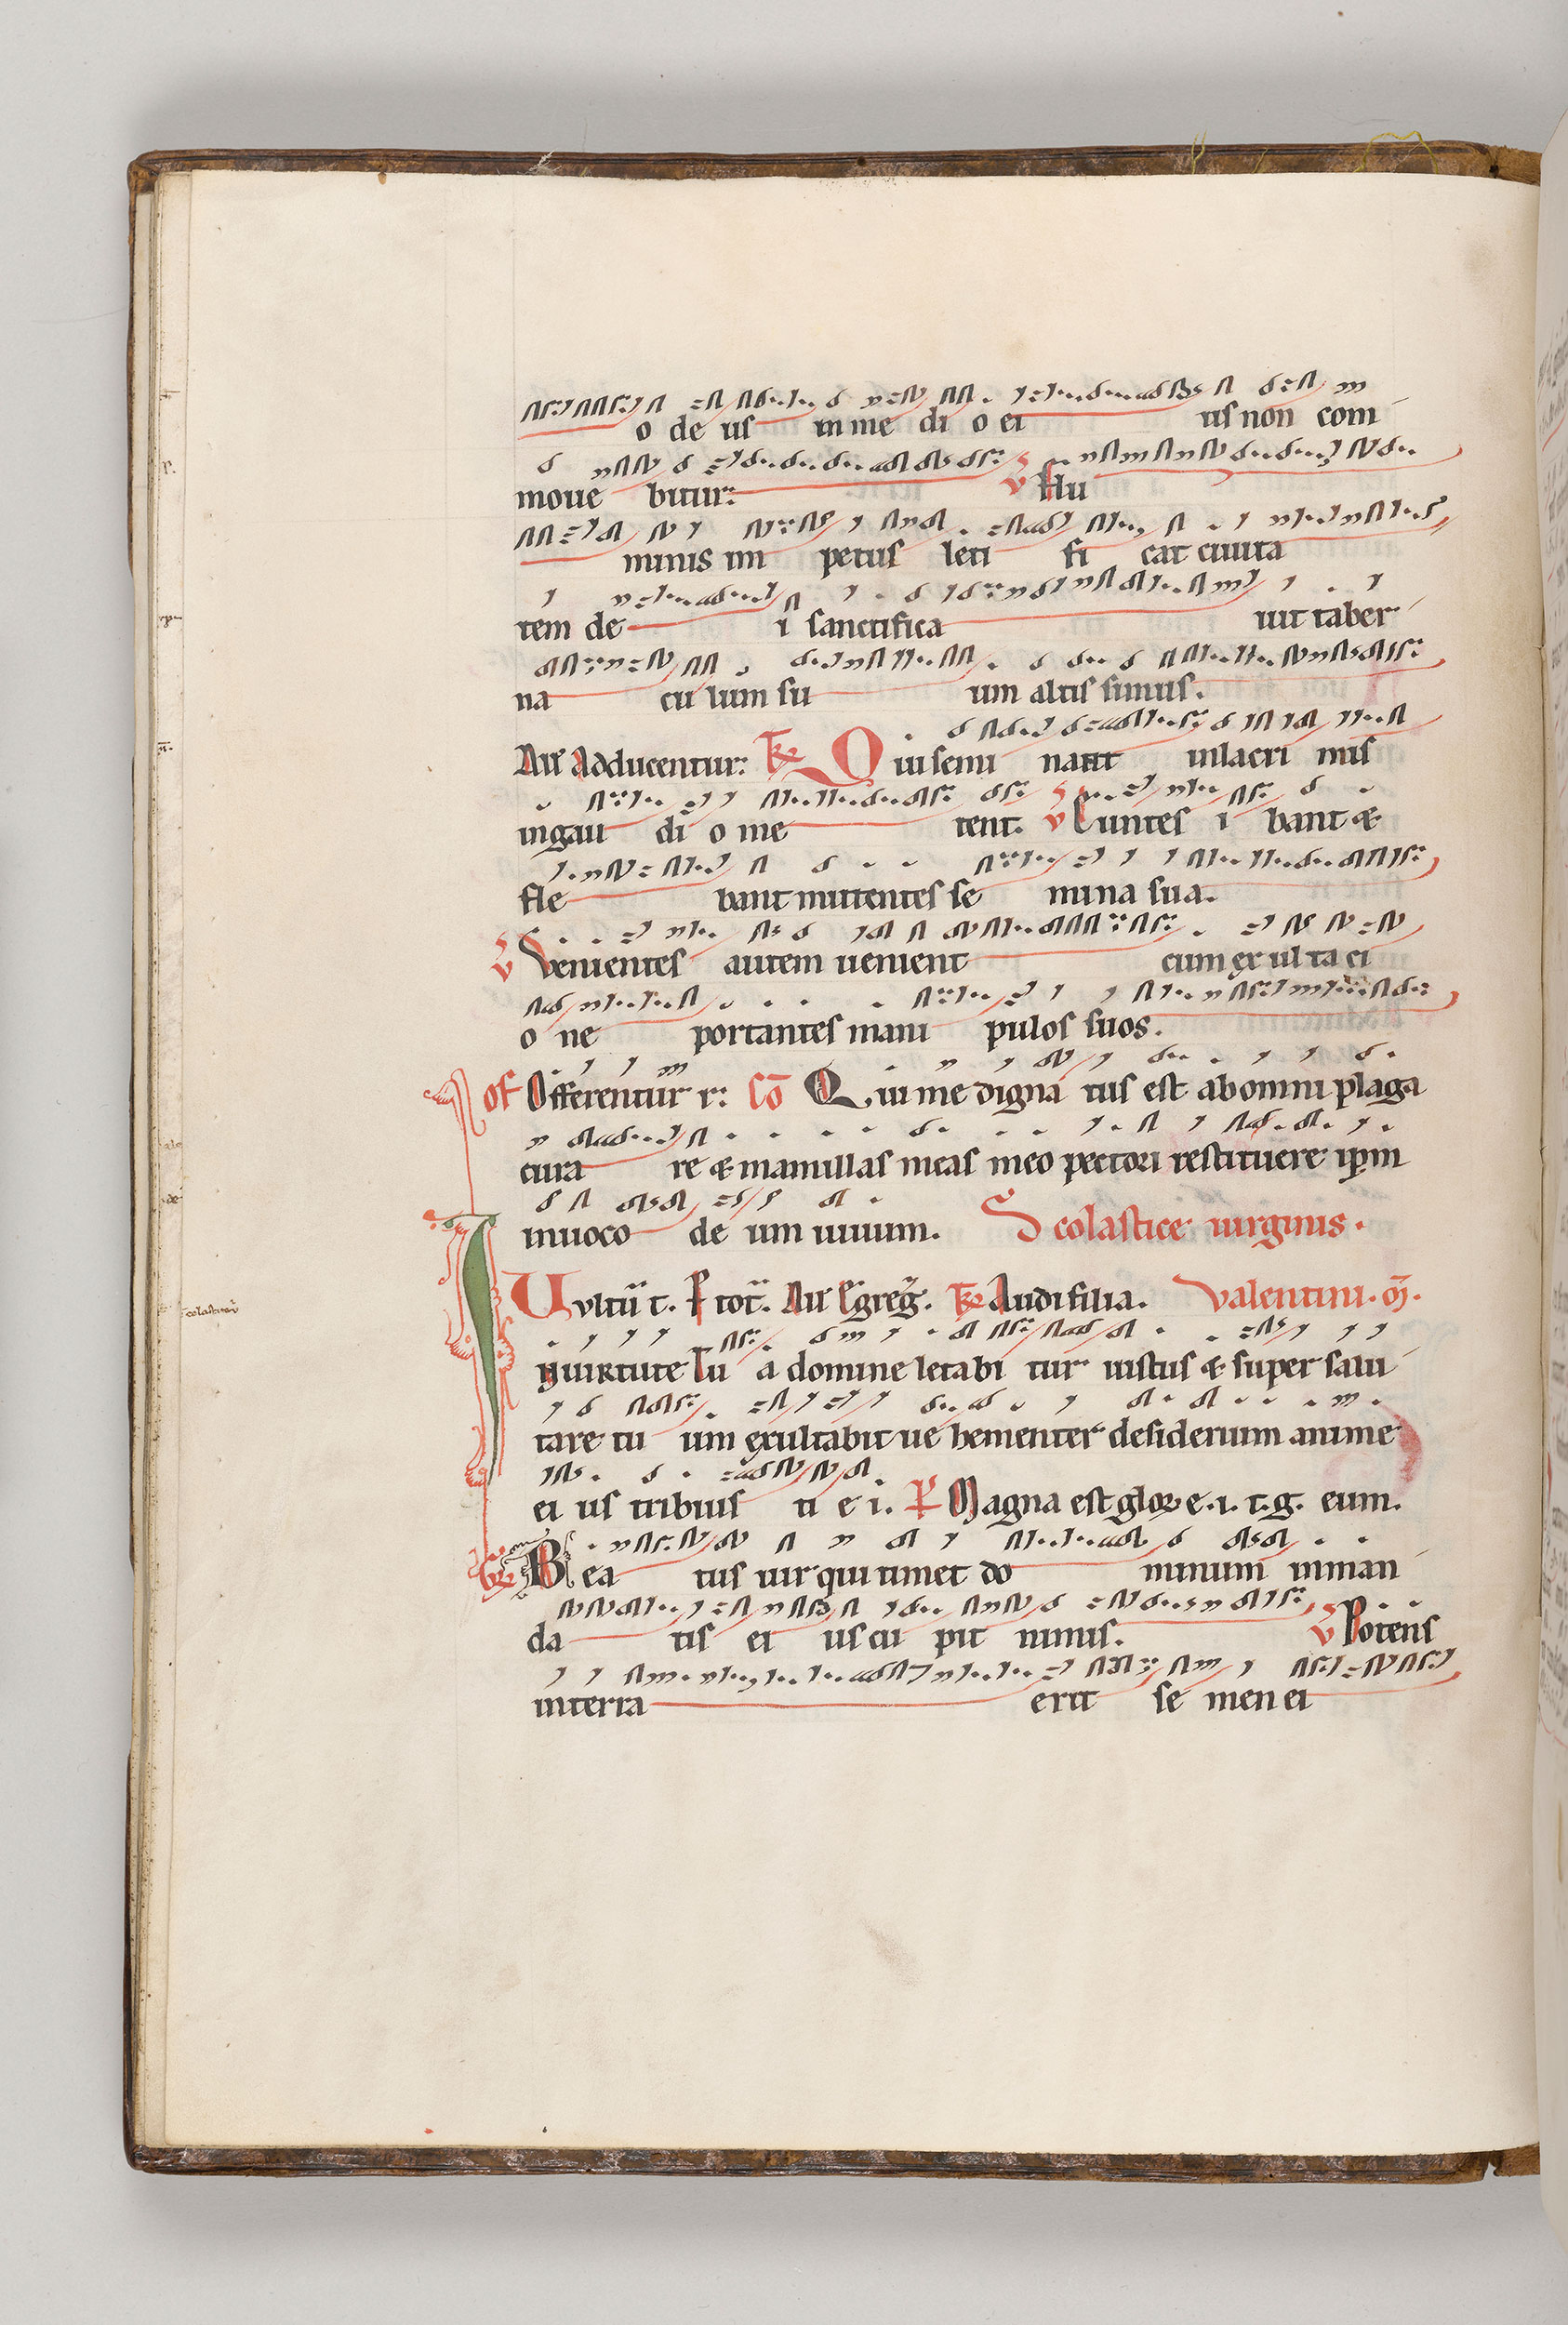 o de us in me di o ei us non com
moue bitur: V Flu
minis im petus leti fi cat ciuita
tem de i sanctifica uit taber
na cu lum su um altis simus.
All' Adducentur: Tr Qui semi nant in lacri mis
in gau di o me tent. V Euntes i bant &
fle bant mittentes se mina sua.
V Venientes autem uenient cum ex ulta ci
o ne portantes mani pulos suos.
Of Offerentur r: Co Qui me digna tus est ab omni plaga
cura re & mamillas meas meo pectori restituere ipm
inuoco de um uiuum. Scolastice uirginis.
Vultu t. tot. All' Egreg. Tr Audi filia. Valentini. m.
In uirtute tu a domine letabi tur iustus & super salu
tare tu um exultabit ue hementer desiderium anime
ei us tribuis ti e i. P Magna est glor e. i. t. g. eum.
Gr Bea tus uir qui timet do minum in man
da tis ei us cu pit nimis. V Potens
in terra erit se men ei